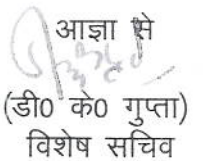 आज्ञा से
(डी0 के0 गुप्ता)
विशेष सचिव